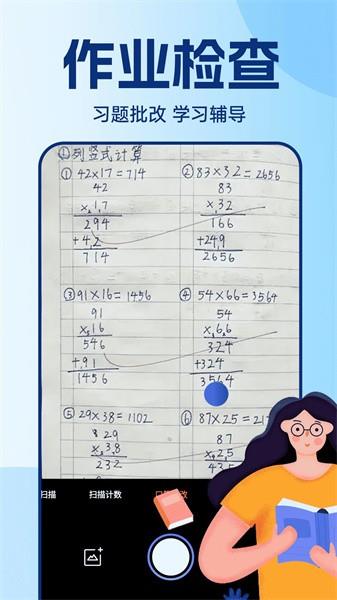 作业检查
习题批改 学习辅导
①列竖式计算
① 42×17=714
42
×17
294
+42
714
② 83×32=2656
83
×32
166
+249
2656
③ 91×16=1456
91
×16
546
+91
1456
④ 54×66=3564
54
×66
324
+324
3564
⑤ 29×38=1102
29
×38
232
⑥ 87×25=21
87
×25
435
扫描
扫描计数